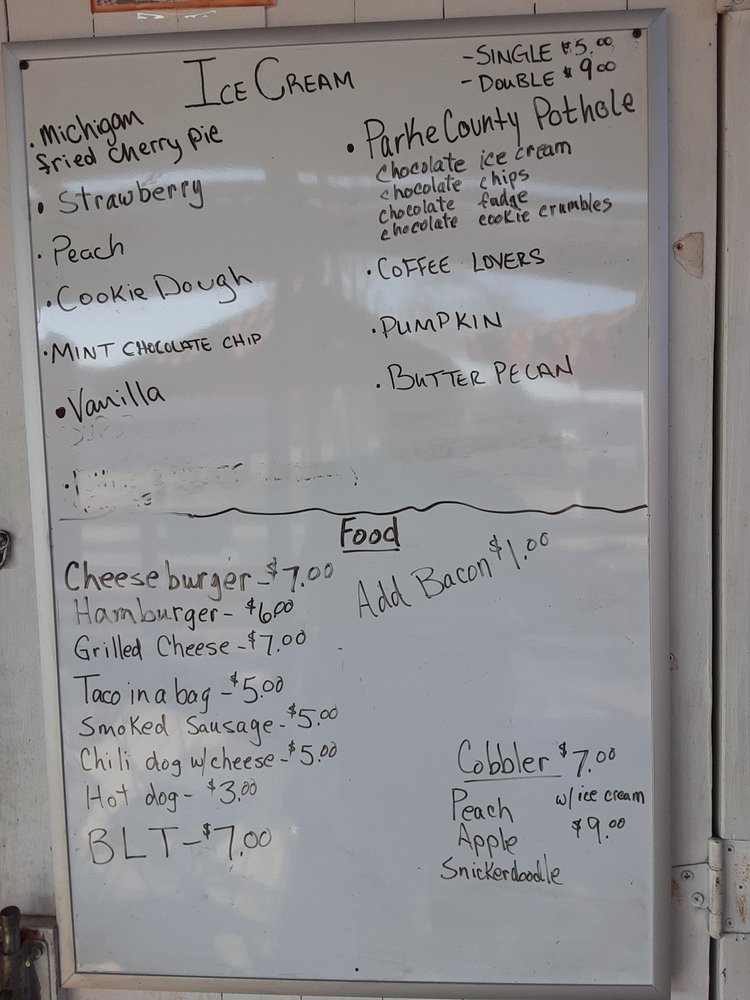 ICE CREAM
- SINGLE $5.00
- DOUBLE $9.00
• Michigan
fried cherry pie
• Strawberry
• Peach
• Cookie Dough
• MINT CHOCOLATE CHIP
• Vanilla
• Parke County Pothole
chocolate ice cream
chocolate chips
chocolate fudge
chocolate cookie crumbles
• COFFEE LOVERS
• PUMPKIN
• BUTTER PECAN
Food
Cheeseburger - $7.00
Hamburger - $6.00
Grilled Cheese - $7.00
Taco in a bag - $5.00
Smoked Sausage - $5.00
Chili dog w/cheese - $5.00
Hot dog - $3.00
BLT - $7.00
Add Bacon $1.00
Cobbler $7.00
w/ ice cream
$9.00
Peach
Apple
Snickerdoodle